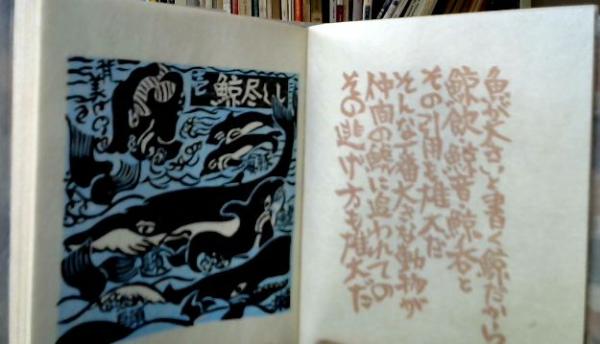 鯨尽くし
魚が大きいと書く鯨だから
鯨飲 鯨音 鯨呑と
その引用も雄大だ
そんな一番大きな動物が
仲間の鯱に追われての
その逃げ方も雄大だ